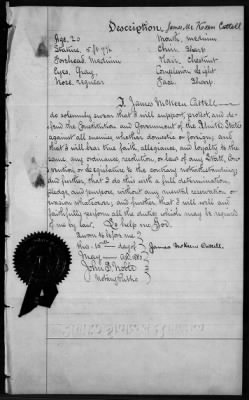 Description, James Mc Keen Cattell
Age, 20 Mouth, medium
Stature, 5 ft 7 1/2 Chin Sharp
Forehead, Medium Hair, Chestnut
Eyes, Gray, Complexion Light
Nose regular Face, Sharp
I James McKeen Cattell
do solemnly swear that I will support, protect, and de-
fend the Constitution and Government of the United States
against all enemies whether domestic or foreign; and
that I will bear true faith, allegiance, and loyalty to the
same, any ordinance, resolution, or law of any State, Con-
vention, or Legislature to the contrary notwithstanding;
and further that I do this with a full determination,
pledge and purpose without any mental reservation or
evasion whatsoever; and further that I will well and
faithfully perform all the duties which may be required
of me by law. So help me God.
Sworn to before me
this 10th day of James McKeen Cattell.
May A.D. 1880
John D. Noble
Notary Public